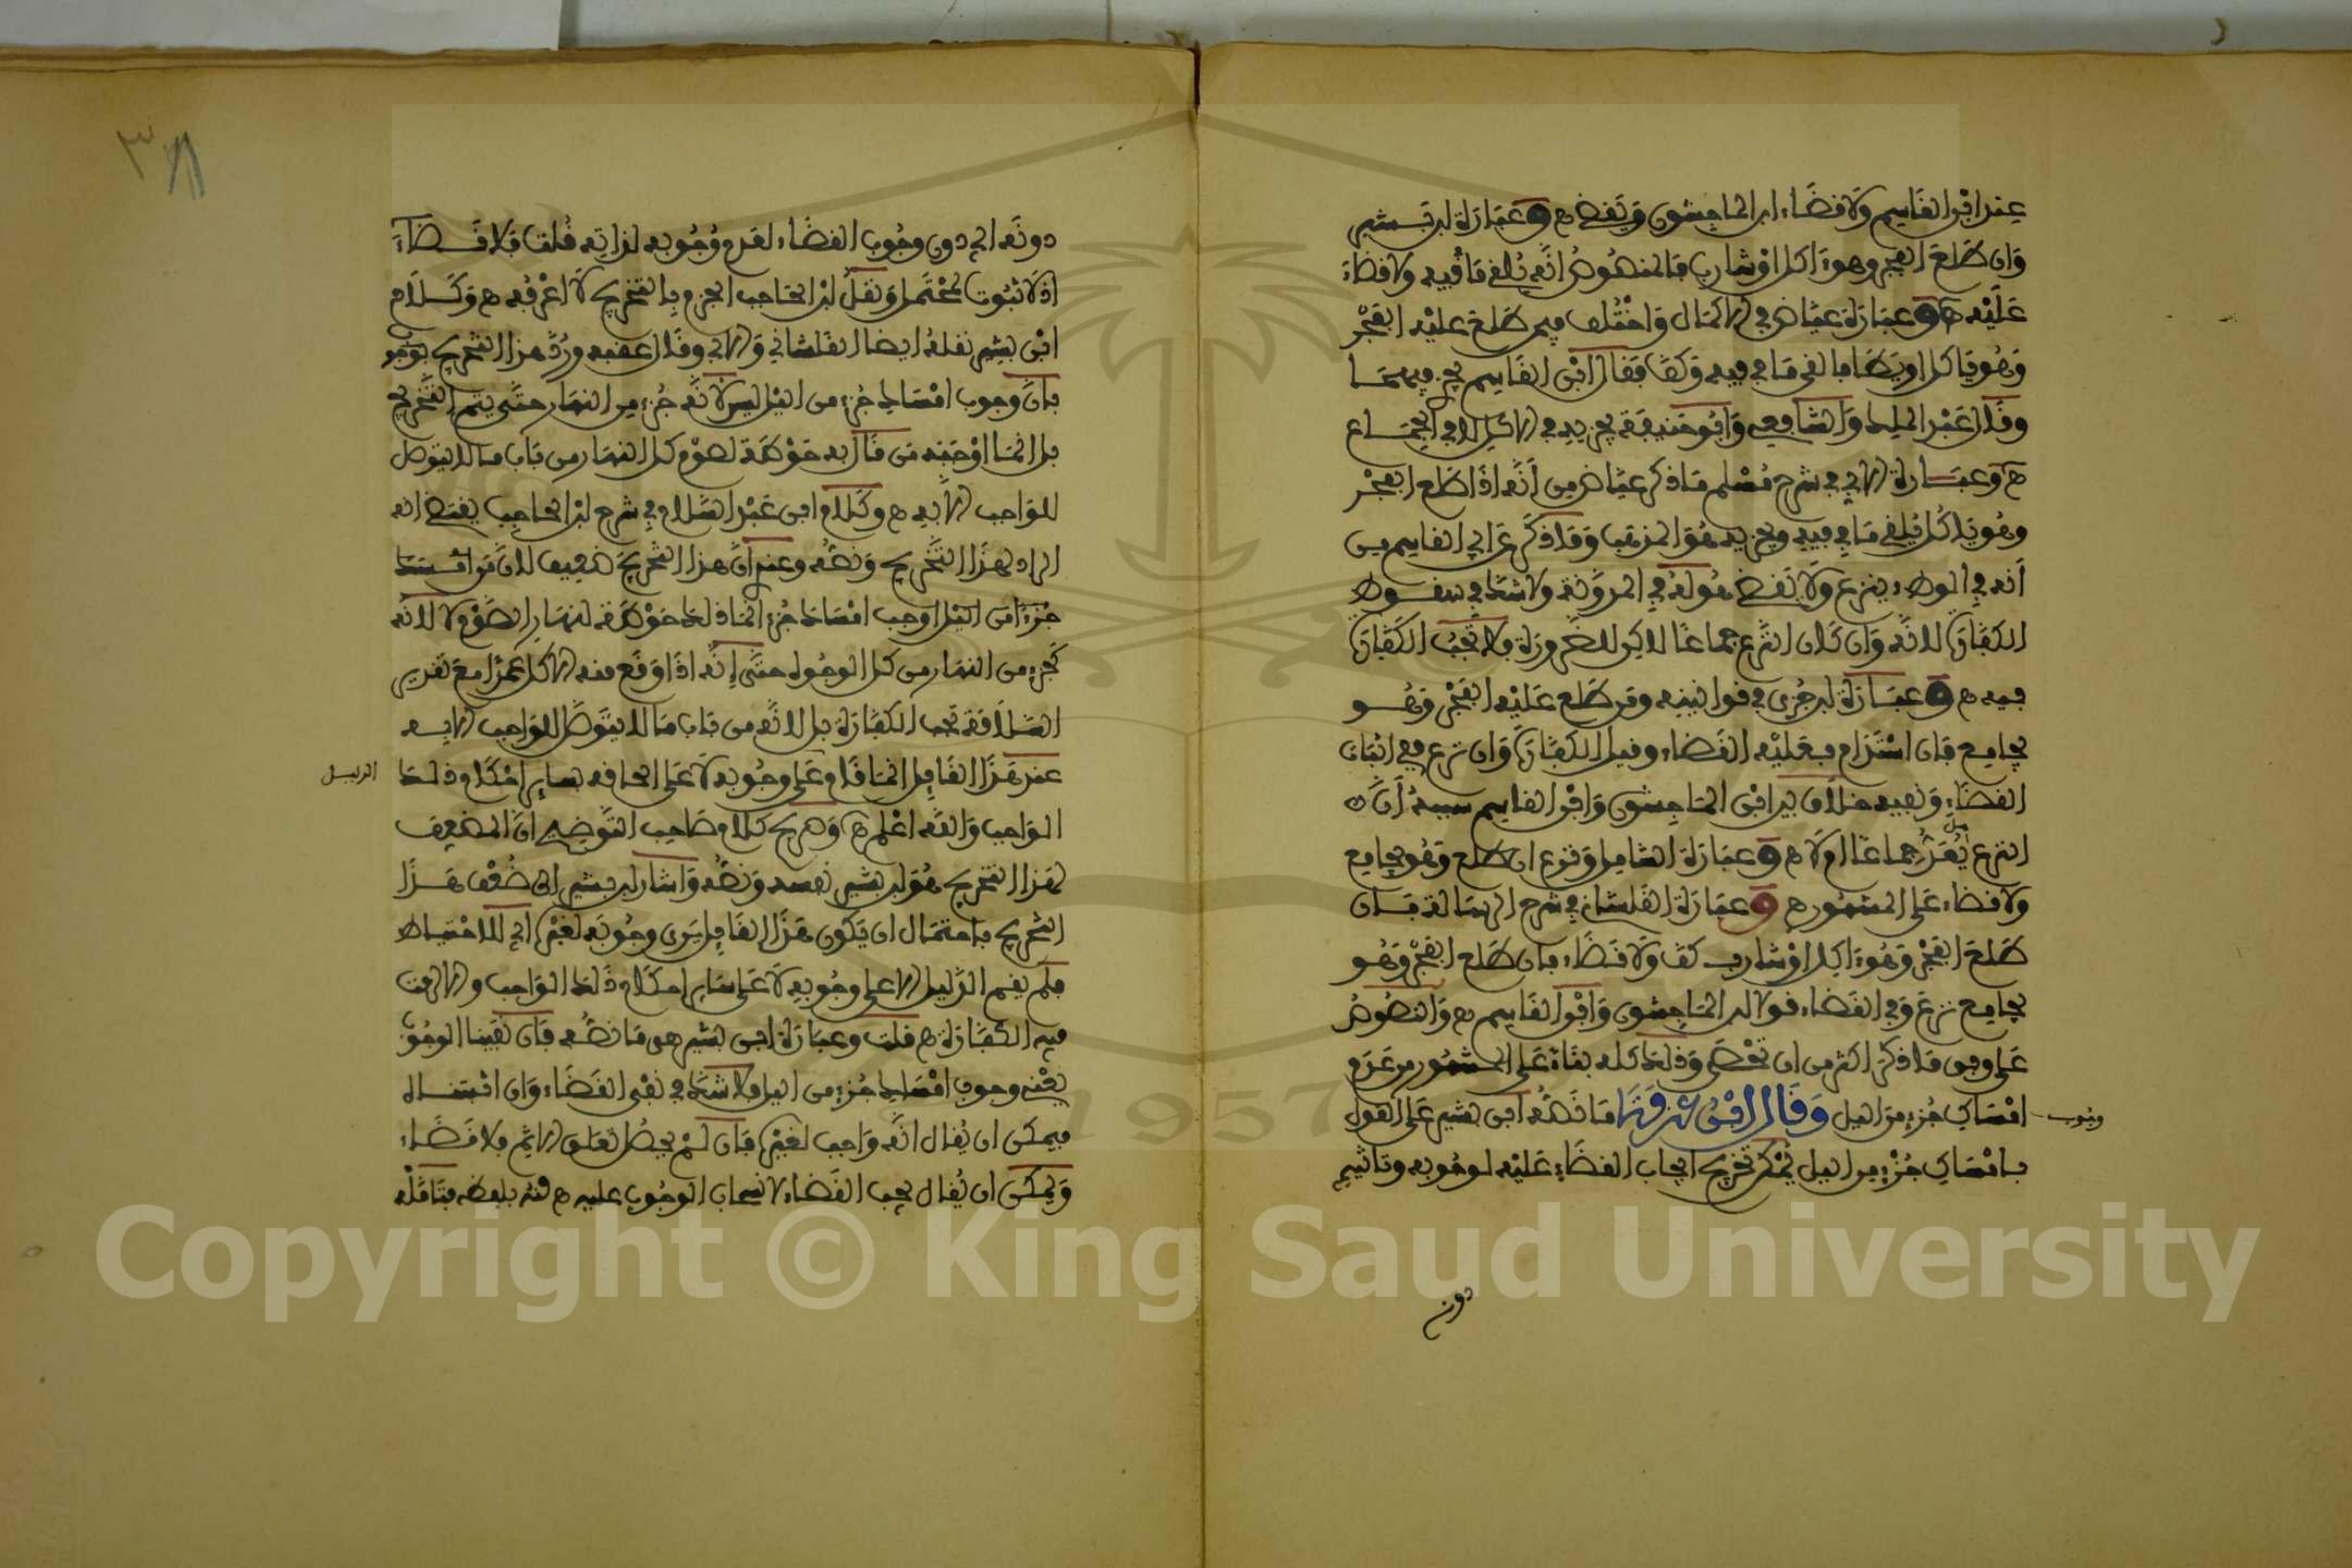 عند ابن القاسم ولا قضاء ابن الماجشون ويقضي ه وعبارة ابن بشير
وان طلع الفجر وهو ءاكل او شارب فالمنصوص انه يلقي ما فيه ولا قضاء
عليه ه وعبارة عياض في الاكمال واختلف فيمن طلع عليه الفجر
وهو ياكل او يطا فالقى ما في فيه وكف فقال ابن القاسم يجزيهما
وقال عبد الملك والشافعي وابو حنيفة يجزيه في الاكل لا في الجماع
ه وعبارة الابي في شرح مسلم ما ذكر عياض من انه اذا طلع الفجر
وهو ياكل يلقي ما في فيه ويجزيه هو المذهب وما ذكر عن ابن القاسم من
انه في الوطء ينزع ولا يقضي هو له في المدونة ولا شك في سقوط
الكفارة لانه وان كان النزع جماعا لاكن للضرورة فلا تجب الكفارة
فيه ه وعبارة ابن جزي في قوانينه ومن طلع عليه الفجر وهو
يجامع فان استدام فعليه القضاء وقيل الكفارة وان نزع ففي اثبات
القضاء ونفيه خلاف بين ابن الماجشون وابن القاسم سببه ان
النزع هل يعد جماعا ام لا ه وعبارة الشامل ونزع ان طلع وهو يجامع
ولا قضاء على المشهور ه وعبارة القلشاني في شرح الرسالة فان
طلع الفجر وهو ءاكل او شارب كف ولا قضاء فان طلع الفجر وهو
يجامع نزع وفي القضاء قولا ابن الماجشون وابن القاسم ه والنصوص
على وفق ما ذكر اكثر من ان تحصى وذلك كله بناء على المشهور من عدم
وجوب
امساك جزء من اليل وقال ابن عرفة ما نصه ابن بشير على القول
بامساك جزء من اليل يمكن تخريج ايجاب القضاء عليه لوجوبه وتاثيم
دون
دونه اي دون وجوب القضاء لعدم وجوبه لذاته قلت فلا قضاء
اذ لا ثبوت لمحتمل ونقل ابن الحاجب الجزم بالتخريج لا اعرفه ه وكلام
ابن بشير نقله ايضا القلشاني والابي وقال عقبه ورد هذا التخريج
بان وجوب امساك جزء من اليل ليس لانه جزء من النهار حتى يتم التخريج
بل انما اوجبه من قال به حوطة لصوم كل النهار من باب ما لا يتوصل
للواجب الا به ه وكلام ابن عبد السلام في شرح ابن الحاجب يقتضي انه
الراد لهذا التخريج ونصه وعندي ان هذا التخريج ضعيف لان من
جزءا من اليل اوجب امساك جزء انما ذلك حوطة لنهار الصوم لا لانه
كجزء من النهار من كل الوجوه حتى انه اذا وقع منه الاكل عمدا مع تقدير
السلامة تجب الكفارة بل لانه من باب ما لا يتوصل للواجب الا به
عند هذا القايل انما قام على وجوبه لا على الحاقه بساير احكام ذلك
الدليل
الواجب والله اعلم ه وصريح كلام صاحب التوضيح ان المضعف
لهذا التخريج هو ابن بشير نفسه ونصه واشار ابن بشير الى ضعف هذا
التخريج باحتمال ان يكون هذا القايل يرى وجوبه لغيره اي للاحتياط
فلم يقم الدليل الا على وجوبه لا على ساير احكام ذلك الواجب
فيه الكفارة ه قلت وعبارة ابن بشير هي ما نصه فان نفينا الوجوب
يعني وجوب امساك جزء من اليل فلا شك في نفي القضاء وان
فيمكن ان يقال انه واجب لغيره فان لم يحصل تعلق الاثم فلا قضاء
ويمكن ان يقال يجب القضاء لانسحاب الوجوب عليه ه منه بلفظه فتامله